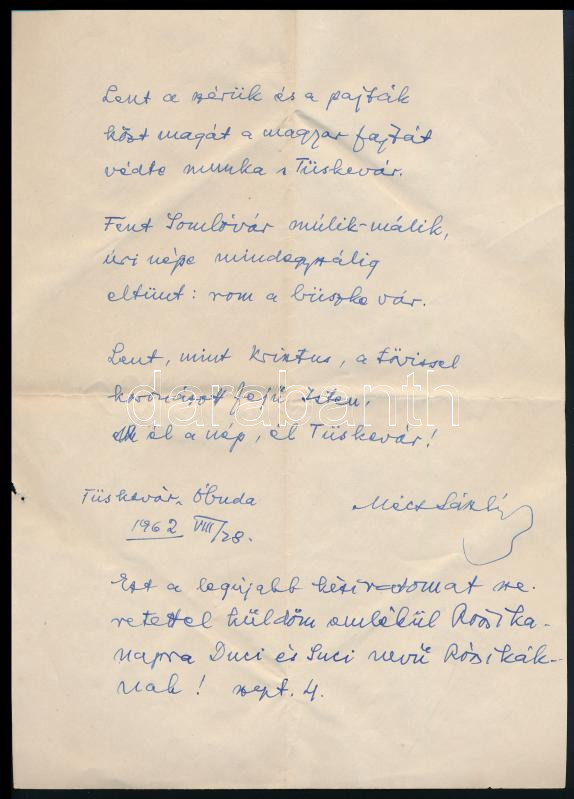 Lent a szérük és a pajták
közt magát a magyar fajtát
védte munka s Tüskevár.
Fent Somlóvár múlik-málik,
úri népe mindegyszálig
eltünt: rom a büszke vár.
Lent, mint Krisztus, a tövissel
koronázott fejű Isten,
él a nép, él Tüskevár!
Tüskevár, Óbuda
Mécs László
1962 VIII/28.
Ezt a legújabb kéziratomat sze-
retettel küldöm emlékül Rozika-
napra Duci és Suci nevű Rózsikák-
nak! szept. 4.
darabanth